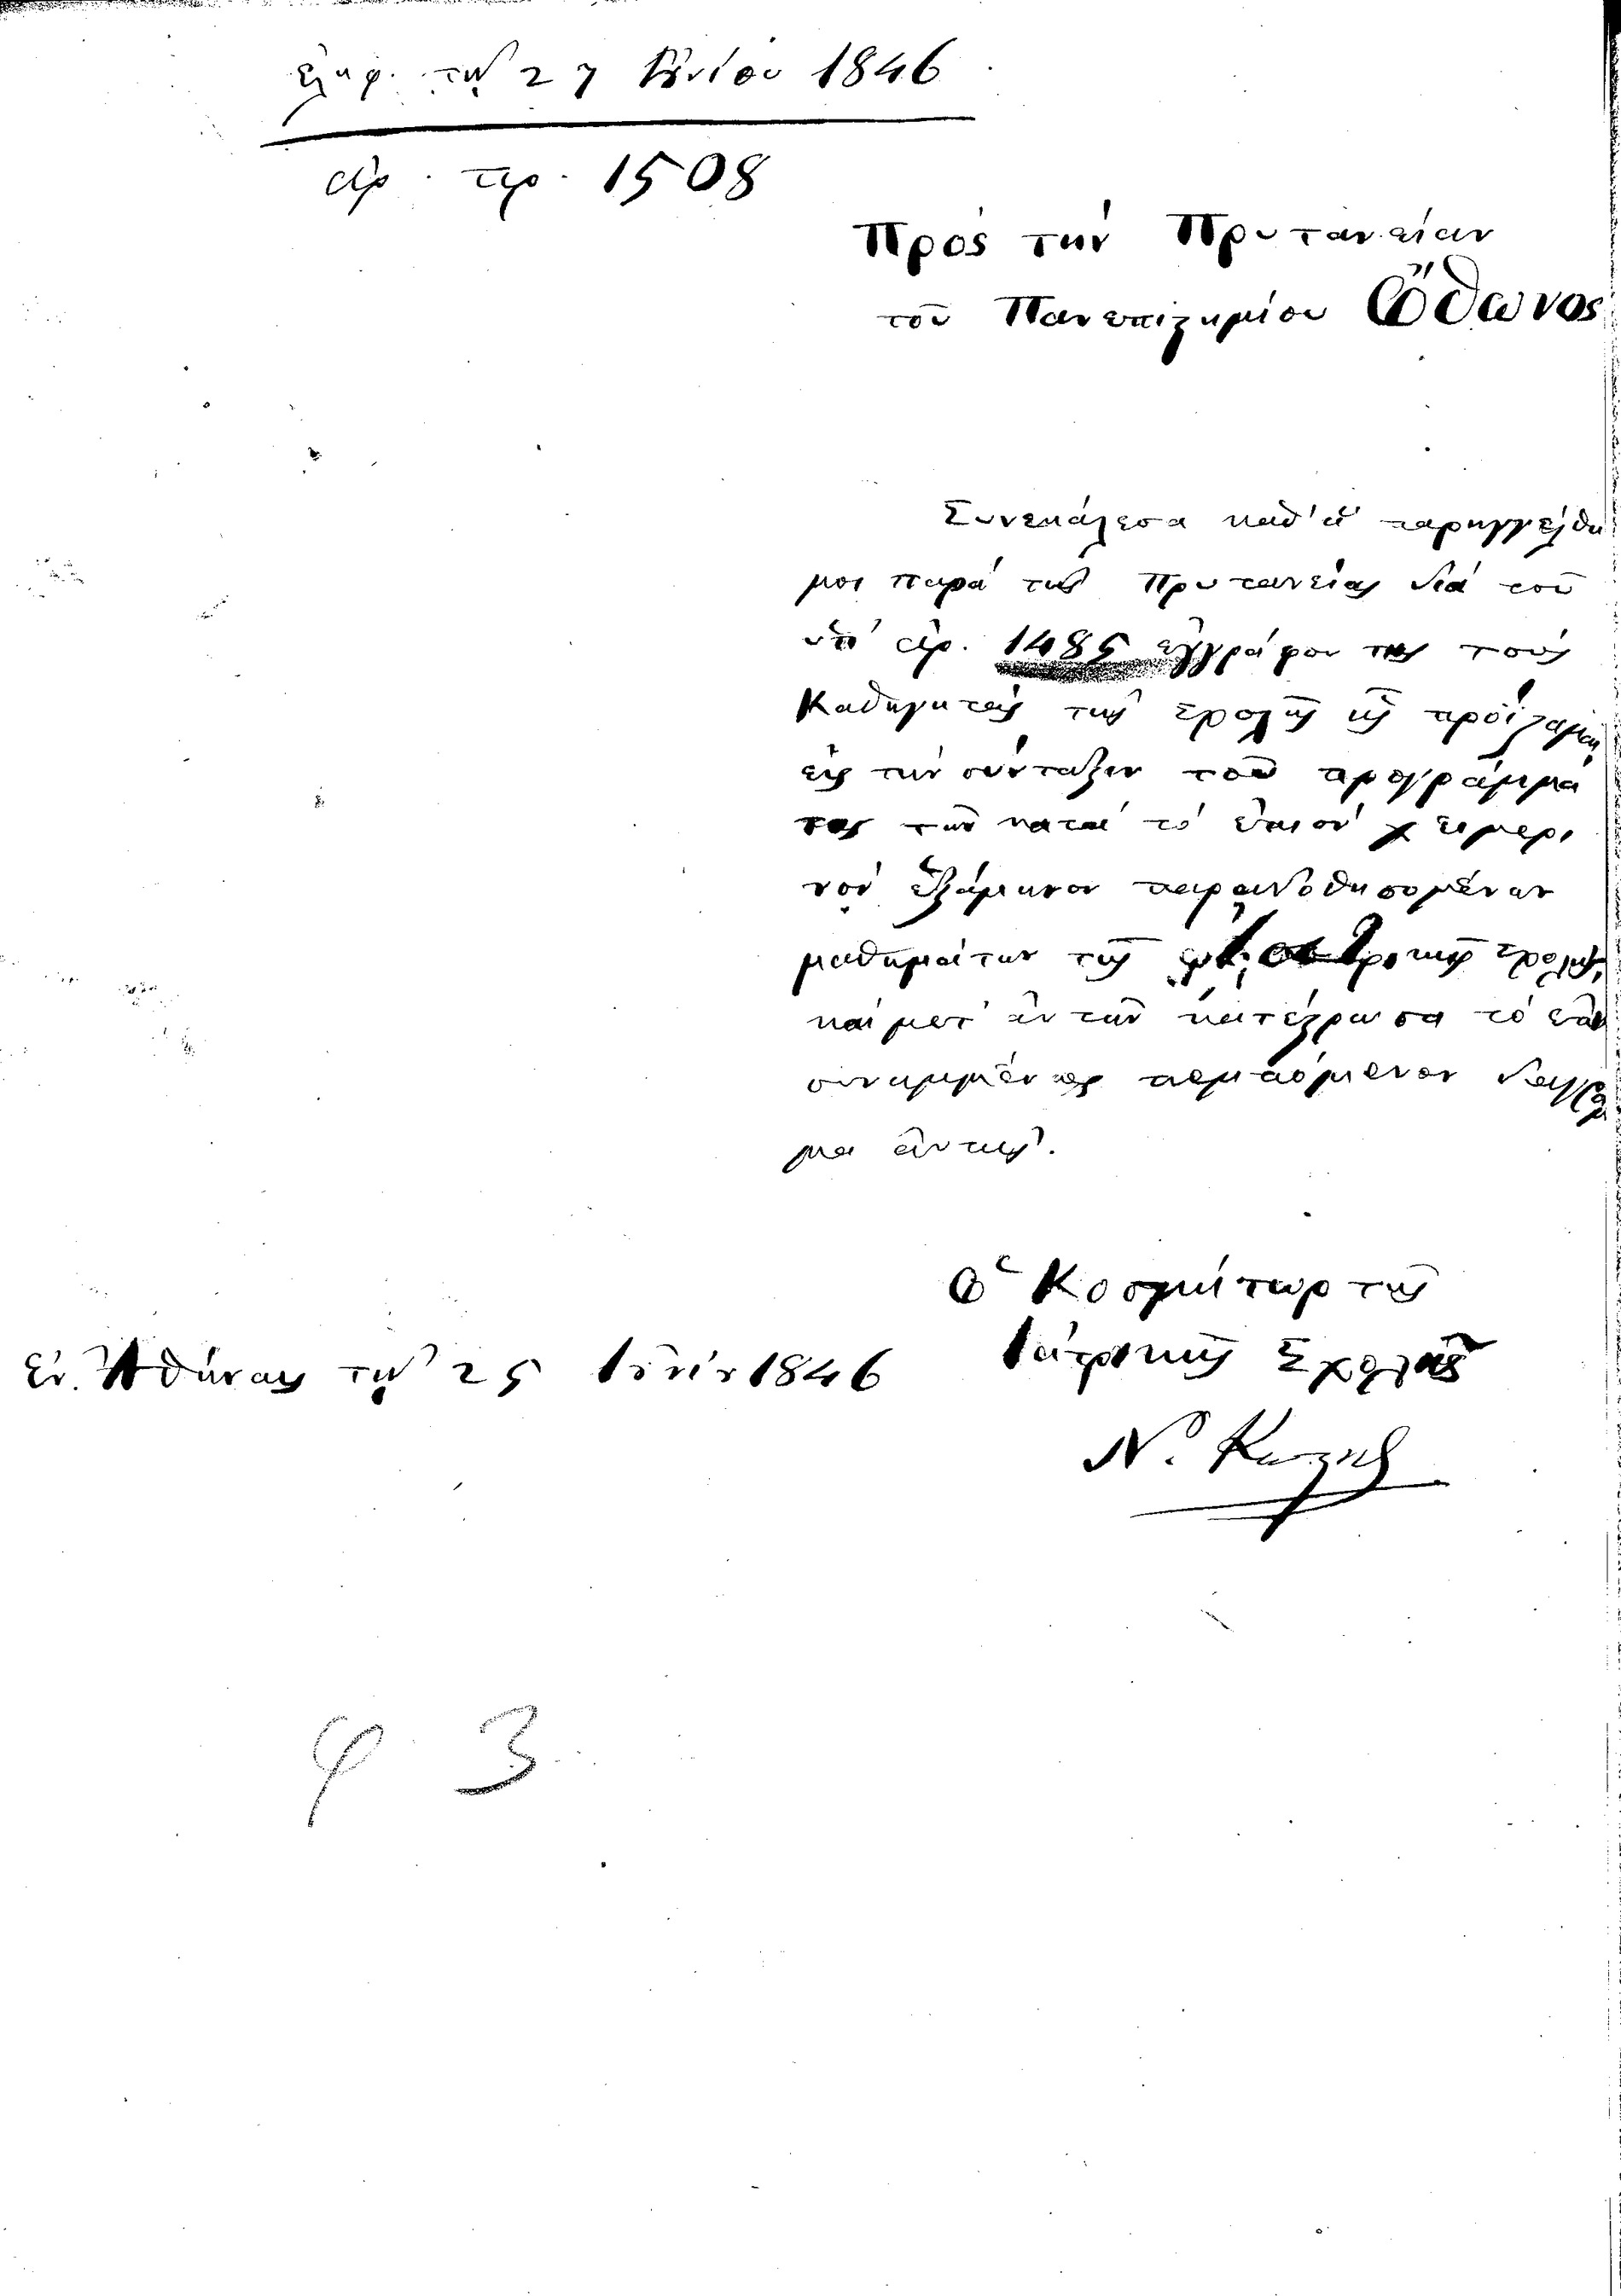 ἐλήφ. τῇ 27 Ἰουνίου 1846
ἀρ. πρ. 1508
Πρὸς τὴν Πρυτανείαν
τοῦ Πανεπιστημίου Ὄθωνος
Συνεκάλεσα καθ' ἃ παρηγγέλθη
μοι παρὰ τῆς Πρυτανείας διὰ τοῦ
ὑπ' ἀρ. 1485 ἐγγράφου της τοὺς
Καθηγητὰς τῆς σχολῆς ἧς προΐσταμαι
εἰς τὴν σύνταξιν τοῦ προγράμμα
τος τῶν κατὰ τὸ ἐπιὸν χειμερι
νὸν ἑξάμηνον παραδοθησομένων
μαθημάτων τῆς ἰατρικῆς σχολῆς,
καὶ μετ' αὐτῶν κατέστρωσα τὸ
συνημμένως πεμπόμενον διάγραμ
μα αὐτῆς.
Ὁ Κοσμήτωρ τῆς
Ἰατρικῆς Σχολῆς
Ἐν Ἀθήναις τῇ 25 Ἰουνίου 1846
Ν. Κωστῆς
φ 3